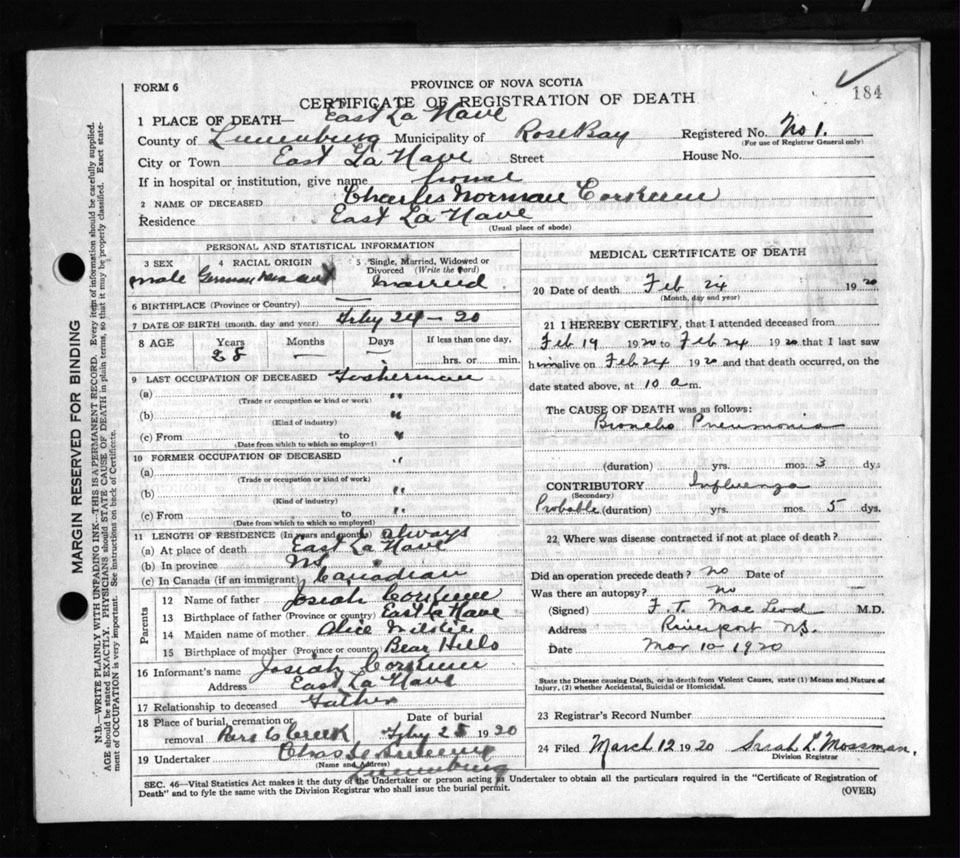 184
FORM 6
PROVINCE OF NOVA SCOTIA
CERTIFICATE OF REGISTRATION OF DEATH
1 PLACE OF DEATH— East La Have
County of Lunenburg Municipality of Rose Bay Registered No. No 1.
(For use of Registrar General only)
City or Town East La Have Street House No.
If in hospital or institution, give name home
2 NAME OF DECEASED Charles Norman Corkum
Residence East La Have
(Usual place of abode)
PERSONAL AND STATISTICAL INFORMATION
3 SEX 4 RACIAL ORIGIN 5 Single, Married, Widowed or Divorced (Write the word)
male German married
6 BIRTHPLACE (Province or Country) —
7 DATE OF BIRTH (month, day and year) Feby 24 - 20
8 AGE Years Months Days If less than one day,
28 — — hrs. or min.
9 LAST OCCUPATION OF DECEASED
(a) "
(Trade or occupation or kind or work)
(b) "
(Kind of industry)
(c) From to "
(Date from which to which so employed)
10 FORMER OCCUPATION OF DECEASED "
(a)
(Trade or occupation or kind of work)
(b) "
(Kind of industry)
(c) From to "
(Date from which to which so employed)
11 LENGTH OF RESIDENCE (In years and months) always
(a) At place of death East La Have
(b) In province NS
(c) In Canada (if an immigrant) Canadian
Parents
12 Name of father Josiah Corkum
13 Birthplace of father (Province or country) East La Have
14 Maiden name of mother Alice
15 Birthplace of mother (Province or country) Bear Hills
16 Informant's name Josiah Corkum
Address East La Have
17 Relationship to deceased Father
18 Place of burial, cremation or removal Creek Date of burial Feby 25 1920
19 Undertaker Chas
(Name and Address)
Lunenburg
MEDICAL CERTIFICATE OF DEATH
20 Date of death Feb 24 1920
(Month, day and year)
21 I HEREBY CERTIFY, that I attended deceased from
Feb 19 1920 to Feb 24 1920 that I last saw
him alive on Feb 24 1920 and that death occurred, on the
date stated above, at 10 a m.
The CAUSE OF DEATH was as follows:
Broncho Pneumonia
(duration) yrs. mos. 3 dys
CONTRIBUTORY Influenza
(Secondary)
Probable (duration) yrs. mos. 5 dys.
22 Where was disease contracted if not at place of death?
Did an operation precede death? no Date of
Was there an autopsy? no
(Signed) F. T. MacLeod M.D.
Address Riverport N.S.
Date Mar 10 1920
State the Disease causing Death, or in death from Violent Causes, state (1) Means and Nature of
Injury, (2) whether Accidental, Suicidal or Homicidal.
23 Registrar's Record Number
24 Filed March 12 1920 Sarah L. Mossman.
Division Registrar
SEC. 46—Vital Statistics Act makes it the duty of the Undertaker or person acting as Undertaker to obtain all the particulars required in the "Certificate of Registration of
Death" and to fyle the same with the Division Registrar who shall issue the burial permit.
(OVER)
MARGIN RESERVED FOR BINDING
N.B.—WRITE PLAINLY WITH UNFADING INK—THIS IS A PERMANENT RECORD. Every item of information should be carefully supplied.
AGE should be stated EXACTLY. PHYSICIANS should STATE CAUSE OF DEATH in plain terms, so that it may be properly classified. Exact state-
ment of OCCUPATION is very important. See instructions on back of Certificate.